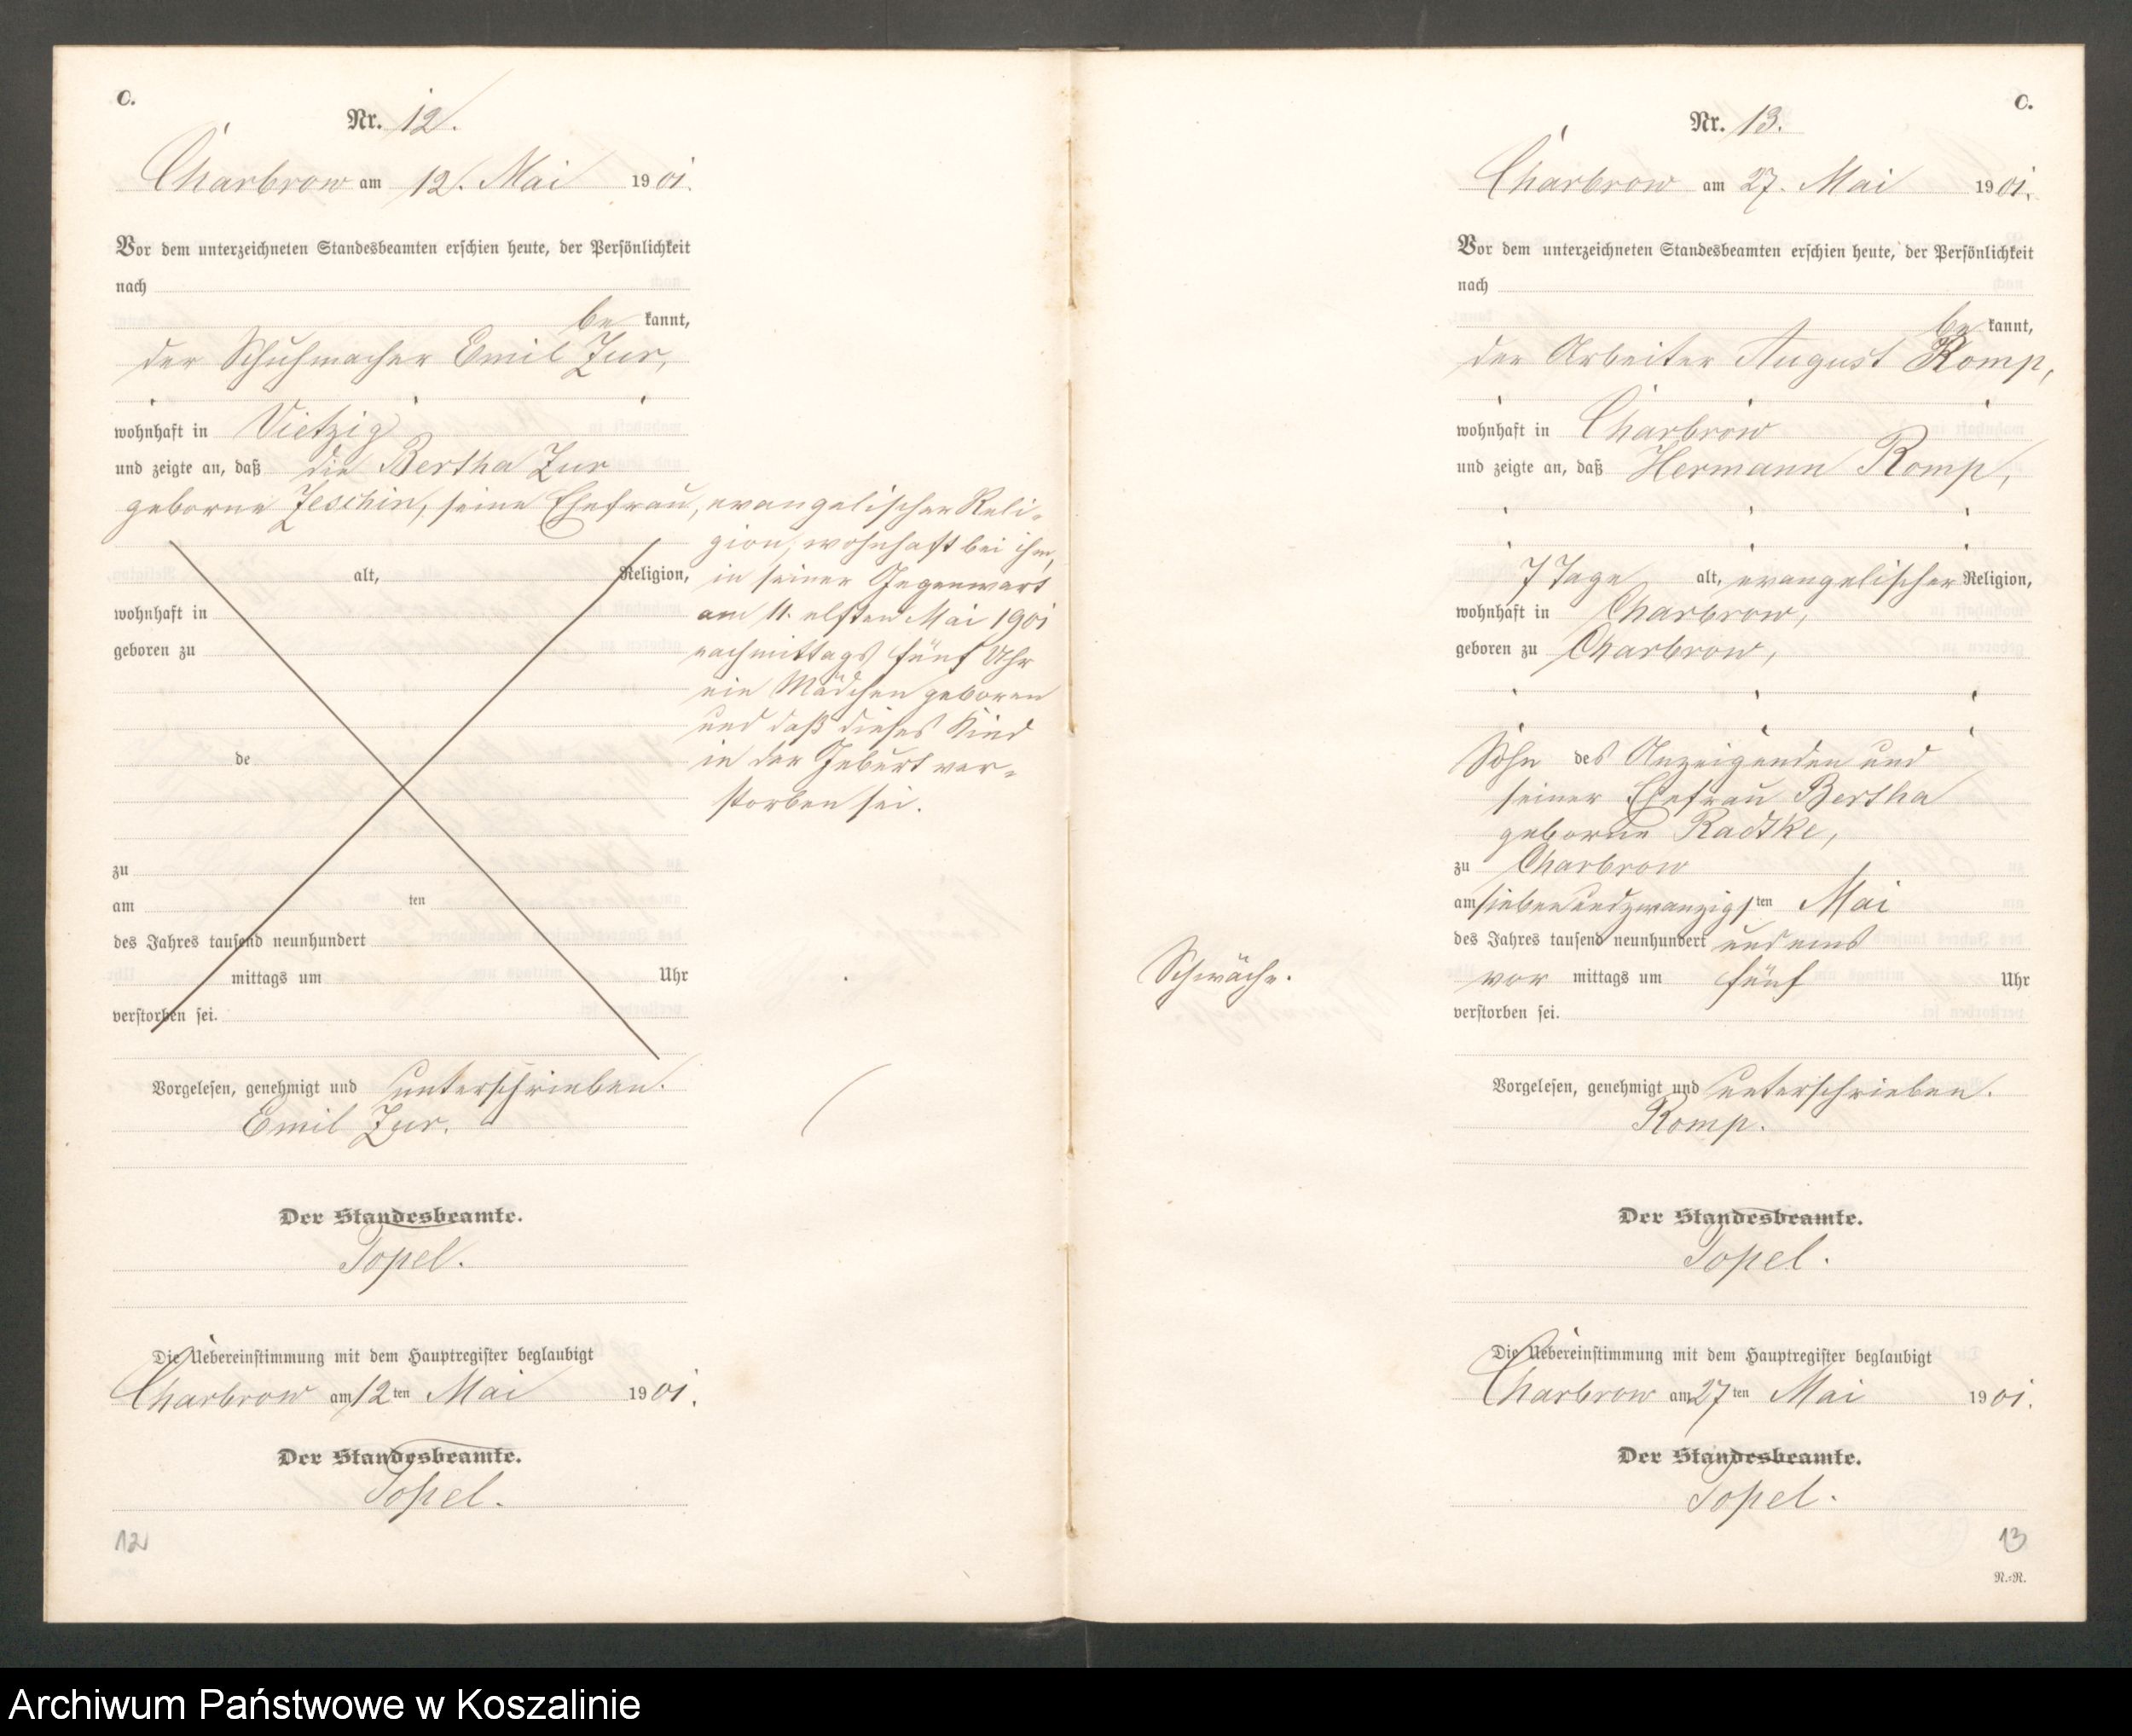 C.
Nr. 12.
Charbrow am 12. Mai 1901.
Vor dem unterzeichneten Standesbeamten erschien heute, der Persönlichkeit
nach
be kannt,
der Schuhmacher Emil Zur,
wohnhaft in Vietzig
und zeigte an, daß die Bertha Zur
geborne Zeschin, seine Ehefrau, evangelischer Reli-
gion, wohnhaft bei ihm,
alt, Religion, in seiner Gegenwart
wohnhaft in am 11. elften Mai 1901
geboren zu nachmittags fünf Uhr
ein Mädchen geboren
und daß dieses Kind
de in der Geburt ver-
storben sei.
zu
am ten
des Jahres tausend neunhundert
mittags um Uhr
verstorben sei.
Vorgelesen, genehmigt und unterschrieben.
Emil Zur.
Der Standesbeamte.
Topel.
Die Uebereinstimmung mit dem Hauptregister beglaubigt
Charbrow am 12ten Mai 1901.
Der Standesbeamte.
Topel.
12
C.
Nr. 13.
Charbrow am 27. Mai 1901.
Vor dem unterzeichneten Standesbeamten erschien heute, der Persönlichkeit
nach
be kannt,
der Arbeiter August Romp,
wohnhaft in Charbrow
und zeigte an, daß Hermann Romp,
7 Tage alt, evangelischer Religion,
wohnhaft in Charbrow,
geboren zu Charbrow,
Sohn des Anzeigenden und
seiner Ehefrau Bertha
geborne Radtke,
zu Charbrow
am siebenundzwanzigsten Mai
des Jahres tausend neunhundert und eins
Schwäche. vor mittags um fünf Uhr
verstorben sei.
Vorgelesen, genehmigt und unterschrieben.
Romp.
Der Standesbeamte.
Topel.
Die Uebereinstimmung mit dem Hauptregister beglaubigt
Charbrow am 27ten Mai 1901.
Der Standesbeamte.
Topel.
13
R.=R.
Archiwum Państwowe w Koszalinie